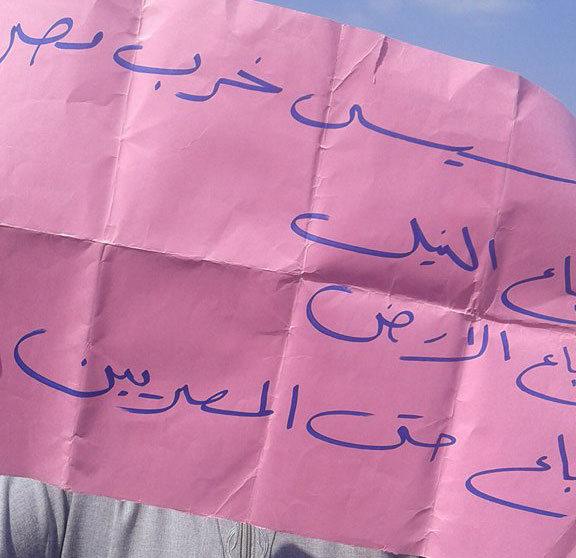 سيسى خرب مصر
باع النيل
باع الارض
باع حتى المصريين